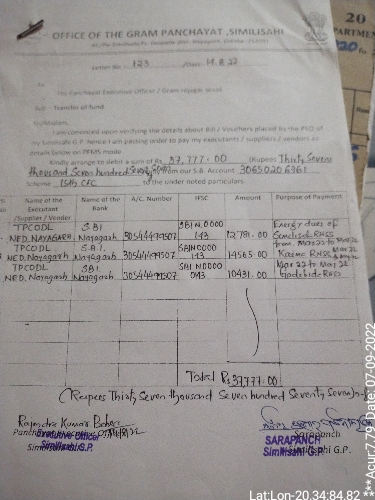 OFFICE OF THE GRAM PANCHAYAT ,SIMILISAHI
Letter No. 123 /Date 19.8.22
To
The Panchayat Executive Officer / Gram
Sub - Transfer of fund.
I am convinced upon verifying the details about Bill / Vouchers placed by the PEO of
my Similisahi G.P. hence I am passing order to pay my executants / suppliers / vendors as
details below on PFMS mode.
Kindly arrange to debit a sum of Rs. 37,777.00 (Rupees Thirty Seven
thousand Seven hundred from our S.B. Account 30650206961
Scheme 15th CFC to the under noted particulars.
Name of the Executant /Supplier / Vendor Name of the Bank A/C. Number IFSC Amount Purpose of Payment
TPCODL NED.NAYAGARH SBI Nayagarh 30544499507 SBIN0000 143 12781.00 Energy dues of RWSS from Mar 22 to May 22
TPCODL NED.Nayagarh SBI Nayagarh 30544499507 SBIN0000 143 14565.00 RWSS Mar 22
TPCODL NED.Nayagarh SBI Nayagarh 30544499507 SBIN0000 10431.00 Mar 22 to May 22
Total Rs 37777.00
(Rupees Thirty Seven thousand Seven hundred Seventy Seven)
Rajendra Kumar
Executive Officer
Similisahi G.P.
Sarapanch
SARAPANCH
Similisahi G.P.
20
Lat:Lon-20.34:84.82
***Acur:7.79* Date: 07-09-2022